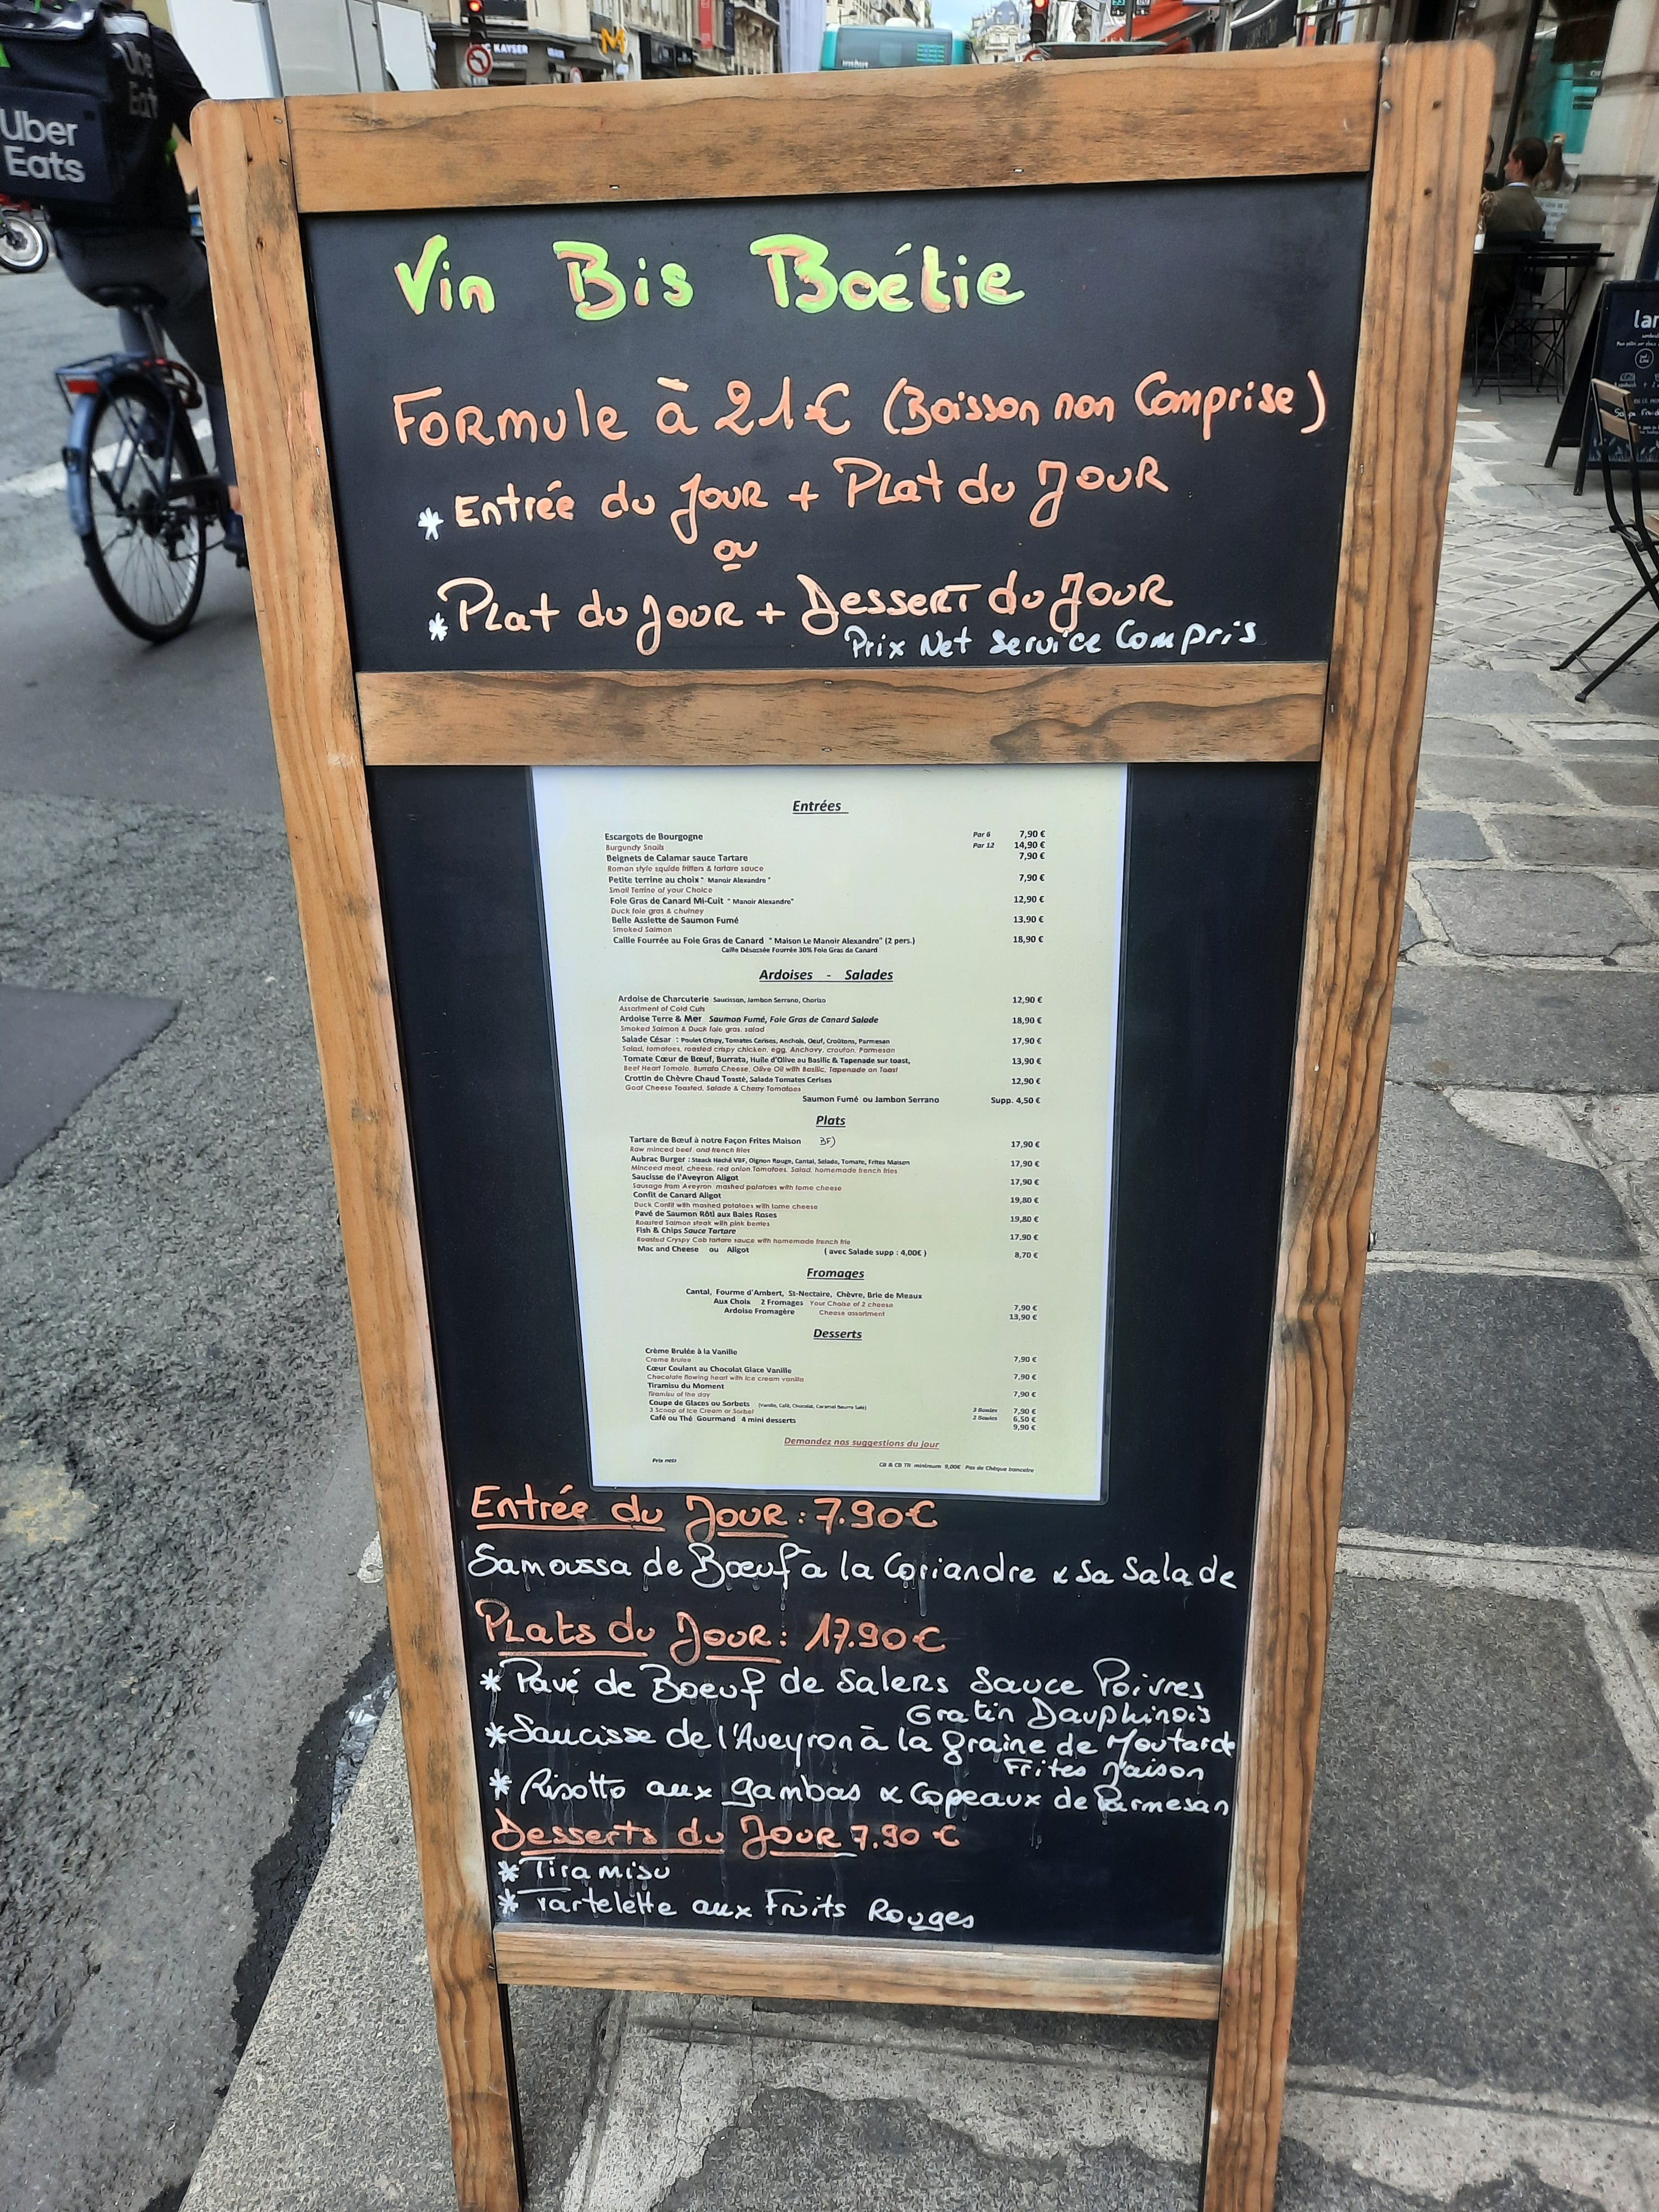 Uber
Eats
C KAYSER
M
Vin Bis Boétie
Formule à 21€ (Boisson non Comprise)
* Entrée du Jour + Plat du Jour
ou
* Plat du Jour + Dessert du Jour
Prix Net Service Compris
Entrées
Escargots de Bourgogne Par 6 7,90 €
Burgundy Snails Par 12 14,90 €
Beignets de Calamar sauce Tartare 7,90 €
Roman style squide fritters & tartare sauce
Petite terrine au choix " Manoir Alexandre " 7,90 €
Small Terrine of your Choice
Foie Gras de Canard Mi-Cuit " Manoir Alexandre" 12,90 €
Duck foie gras & chutney
Belle Assiette de Saumon Fumé 13,90 €
Smoked Salmon
Caille Fourrée au Foie Gras de Canard " Maison Le Manoir Alexandre" (2 pers.) 18,90 €
Caille Désossée Fourrée 30% Foie Gras de Canard
Ardoises - Salades
Ardoise de Charcuterie Saucisson, Jambon Serrano, Chorizo 12,90 €
Assortment of Cold Cuts
Ardoise Terre & Mer Saumon Fumé, Foie Gras de Canard Salade 18,90 €
Smoked Salmon & Duck foie gras, salad
Salade César : Poulet Crispy, Tomates Cerises, Anchois, Oeuf, Croûtons, Parmesan 17,90 €
Salad, tomatoes, roasted crispy chicken, egg, Anchovy, crouton, Parmesan
Tomate Cœur de Bœuf, Burrata, Huile d'Olive au Basilic & Tapenade sur toast, 13,90 €
Beef Heart Tomato, Burrata Cheese, Olive Oil with Basilic, Tapenade on Toast
Crottin de Chèvre Chaud Toasté, Salade Tomates Cerises 12,90 €
Goat Cheese Toasted, Salade & Cherry Tomatoes
Saumon Fumé ou Jambon Serrano Supp. 4,50 €
Plats
Tartare de Bœuf à notre Façon Frites Maison 17,90 €
Raw minced beef and french fries
Aubrac Burger : Steack Haché VBF, Oignon Rouge, Cantal, Salade, Tomate, Frites Maison 17,90 €
Minceed meat, cheese, red onion, Tomatoes, Salad, homemade french fries
Saucisse de l'Aveyron Aligot 17,90 €
Sausage from Aveyron mashed potatoes with tome cheese
Confit de Canard Aligot 19,80 €
Duck Confit with mashed potatoes with tome cheese
Pavé de Saumon Rôti aux Baies Roses 19,80 €
Roasted Salmon steak with pink berries
Fish & Chips Sauce Tartare 17,90 €
Roasted Cryspy Cab tartare sauce with homemade french frie
Mac and Cheese ou Aligot ( avec Salade supp : 4,00€ ) 8,70 €
Fromages
Cantal, Fourme d'Ambert, St-Nectaire, Chèvre, Brie de Meaux
Aux Choix 2 Fromages Your Choise of 2 cheese 7,90 €
Ardoise Fromagère Cheese assortment 13,90 €
Desserts
Crème Brulée à la Vanille
Creme Brulee 7,90 €
Cœur Coulant au Chocolat Glace Vanille
Chocolate flowing heart with ice cream vanilla 7,90 €
Tiramisu du Moment
Tiramisu of the day 7,90 €
Coupe de Glaces ou Sorbets (Vanille, Café, Chocolat, Caramel Beurre Salé)
3 Scoop of Ice Cream or Sorbet 3 Boules 7,90 €
Café ou Thé Gourmand 4 mini desserts 2 Boules 6,50 €
9,90 €
Demandez nos suggestions du jour
Prix nets CB & CB TR minimum 9,00€ Pas de Chèque bancaire
Entrée du Jour : 7.90€
Samoussa de Bœuf à la Coriandre & Sa Salade
Plats du Jour : 17.90€
* Pavé de Boeuf de Salers Sauce Poivres
Gratin Dauphinois
* Saucisse de l'Aveyron à la graine de Moutarde
Frites Maison
* Risotto aux gambas & Copeaux de Parmesan
Desserts du Jour 7.90 €
* Tiramisu
* Tartelette aux Fruits Rouges